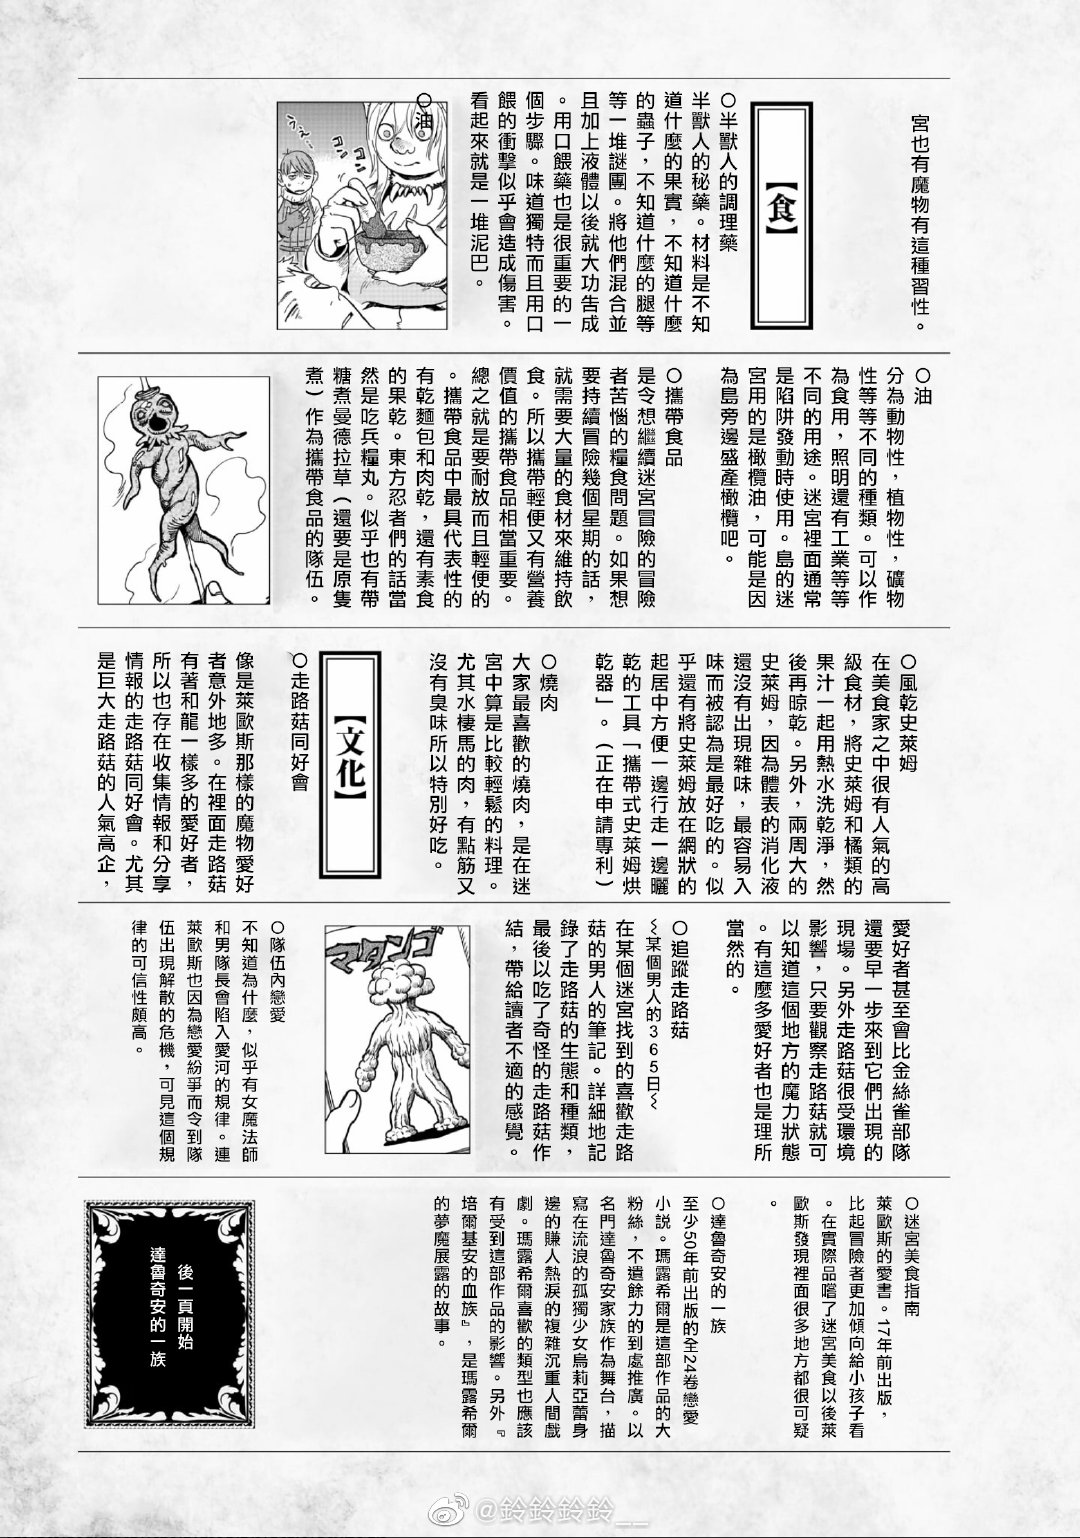 宮也有魔物有這種習性。
【食】
○半獸人的調理藥
半獸人的秘藥。材料是不知
道什麼的果實，不知道什麼
的蟲子，不知道什麼的腿等
等一堆謎團。將他們混合並
且加上液體以後就大功告成
。用口餵藥也是很重要的一
個步驟。味道獨特而且用口
餵的衝擊似乎會造成傷害。
看起來就是一堆泥巴。
○油
コン
コン
うえ
○油
分為動物性，植物性，礦物
性等等不同的種類。可以作
為食用，照明還有工業等等
不同的用途。迷宮裡面通常
是陷阱發動時使用。島的迷
宮用的是橄欖油，可能是因
為島旁邊盛產橄欖吧。
○攜帶食品
是令想繼續迷宮冒險的冒險
者苦惱的糧食問題。如果想
要持續冒險幾個星期的話，
就需要大量的食材來維持飲
食。所以攜帶輕便又有營養
價值的攜帶食品相當重要。
總之就是要耐放而且輕便的
。攜帶食品中最具代表性的
有乾麵包和肉乾，還有素食
的果乾。東方忍者們的話當
然是吃兵糧丸。似乎也有帶
糖煮曼德拉草（還要是原隻
煮）作為攜帶食品的隊伍。
○風乾史萊姆
在美食家之中很有人氣的高
級食材，將史萊姆和橘類的
果汁一起用熱水洗乾淨，然
後再晾乾。另外，兩周大的
史萊姆，因為體表的消化液
還沒有出現雜味，最容易入
味而被認為是最好吃的。似
乎還有將史萊姆放在網狀的
起居中方便一邊行走一邊曬
乾的工具「攜帶式史萊姆烘
乾器」。（正在申請專利）
○燒肉
大家最喜歡的燒肉，是在迷
宮中算是比較輕鬆的料理。
尤其水棲馬的肉，有點筋又
沒有臭味所以特別好吃。
【文化】
○走路菇同好會
像是萊歐斯那樣的魔物愛好
者意外地多。在裡面走路菇
有著和龍一樣多的愛好者，
所以也存在收集情報和分享
情報的走路菇同好會。尤其
是巨大走路菇的人氣高企，
愛好者甚至會比金絲雀部隊
還要早一步來到它們出現的
現場。另外走路菇很受環境
影響，只要觀察走路菇就可
以知道這個地方的魔力狀態
。有這麼多愛好者也是理所
當然的。
○追蹤走路菇
～某個男人的365日～
在某個迷宮找到的喜歡走路
菇的男人的筆記。詳細地記
錄了走路菇的生態和種類，
最後以吃了奇怪的走路菇作
結，帶給讀者不適的感覺。
マタンゴ
○隊伍內戀愛
不知道為什麼，似乎有女魔法師
和男隊長會陷入愛河的規律。連
萊歐斯也因為戀愛紛爭而令到隊
伍出現解散的危機，可見這個規
律的可信性頗高。
○迷宮美食指南
萊歐斯的愛書。17年前出版，
比起冒險者更加傾向給小孩子看
。在實際品嚐了迷宮美食以後萊
歐斯發現裡面很多地方都很可疑
。
○達魯奇安的一族
至少50年前出版的全24卷戀愛
小説。瑪露希爾是這部作品的大
粉絲，不遺餘力的到處推廣。以
名門達魯奇安家族作為舞台，描
寫在流浪的孤獨少女烏莉亞蕾身
邊的賺人熱淚的複雜沉重人間戲
劇。瑪露希爾喜歡的類型也應該
有受到這部作品的影響。另外『
培爾基安的血族』，是瑪露希爾
的夢魔展露的故事。
後一頁開始
達魯奇安的一族
@鈴鈴鈴鈴__